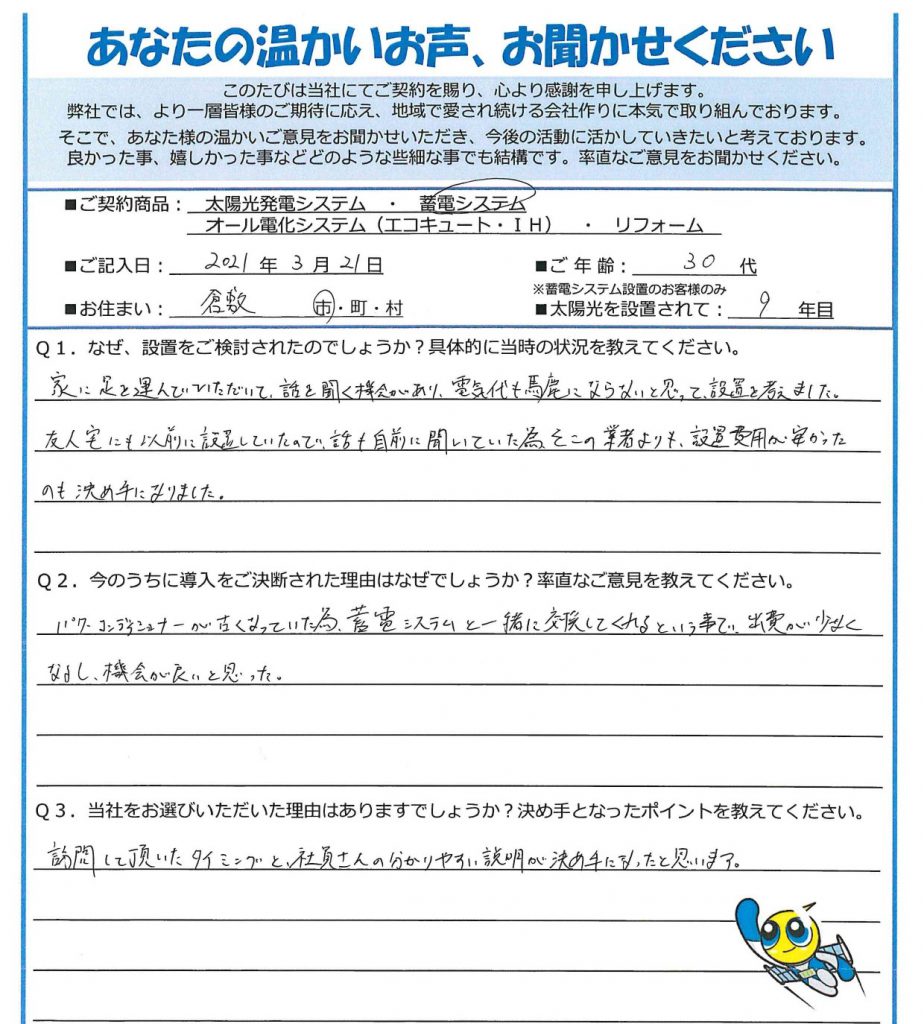 あなたの温かいお声、お聞かせください
このたびは当社にてご契約を賜り、心より感謝を申し上げます。
弊社では、より一層皆様のご期待に応え、地域で愛され続ける会社作りに本気で取り組んでおります。
そこで、あなた様の温かいご意見をお聞かせいただき、今後の活動に活かしていきたいと考えております。
良かった事、嬉しかった事などどのような些細な事でも結構です。率直なご意見をお聞かせください。
■ご契約商品： 太陽光発電システム ・ 蓄電システム
オール電化システム（エコキュート・ＩＨ） ・ リフォーム
■ご記入日： 2021 年 3 月 21 日 ■ご 年 齢： 30 代
※蓄電システム設置のお客様のみ
■お住まい： 倉敷 市・町・村 ■太陽光を設置されて： 9 年目
Ｑ１．なぜ、設置をご検討されたのでしょうか？具体的に当時の状況を教えてください。
家に足を運んでいただいて、話を聞く機会があり、電気代も馬鹿にならないと思って、設置を考えました。
友人宅にも以前に設置していたので、話も自前に聞いていた為、そこの業者よりも、設置費用が安かった
のも決め手になりました。
Ｑ２．今のうちに導入をご決断された理由はなぜでしょうか？率直なご意見を教えてください。
パワーコンディショナーが古くなっていた為、蓄電システムと一緒に交換してくれるという事で、出費が少なく
なるし、機会が良いと思った。
Ｑ３．当社をお選びいただいた理由はありますでしょうか？決め手となったポイントを教えてください。
訪問して頂いたタイミングと、社員さんの分かりやすい説明が決め手になったと思います。